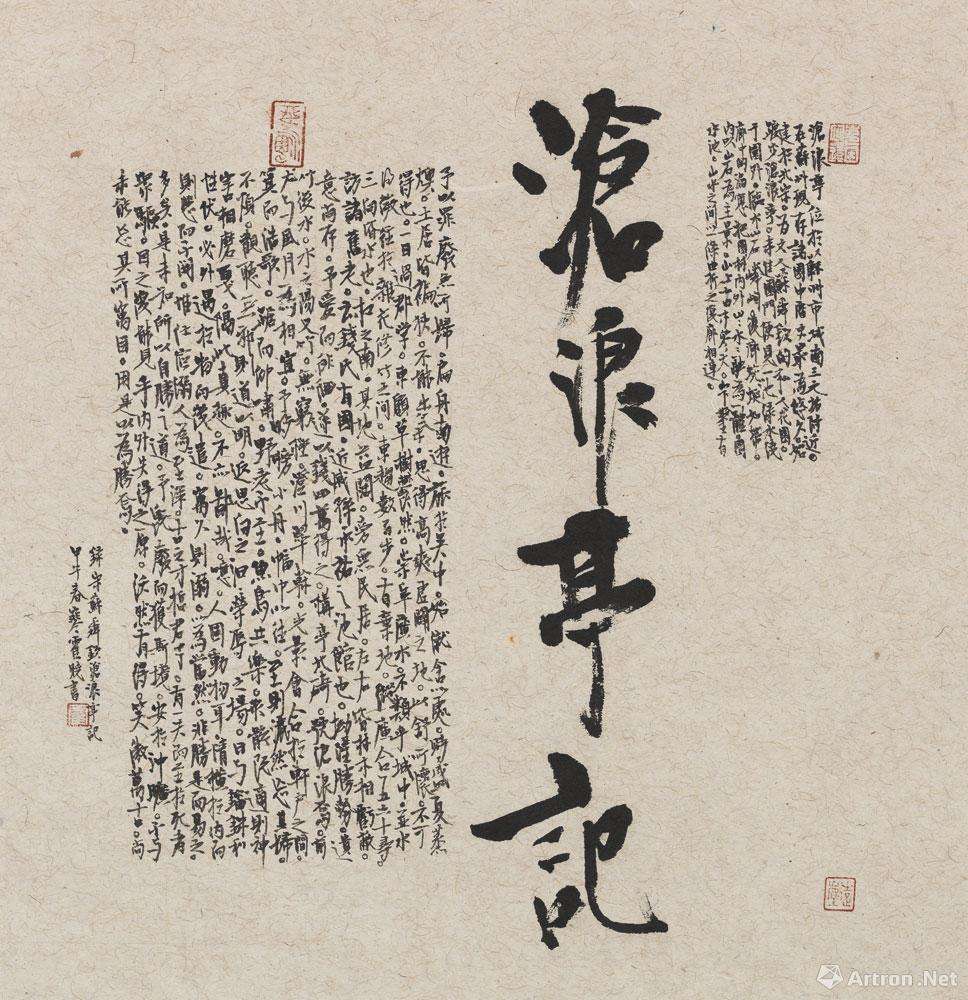 滄浪亭位於蘇州市城南三元坊附近。
在蘇州現存諸園中歷史最為悠久。始
建於北宋。為文人蘇舜欽的私人花園。
踱步滄浪亭。未進園門便見一池綠水繞
于園外。臨水山石嶙峋。復廊蜿蜒如帶。
廊中的漏窗把園林內外山水融為一體。園
內以山石為主景。山上古木參天。山下鑿有
水池。山水之間以一條曲折之復廊相連。
滄浪亭記
予以罪廢無所歸。扁舟南遊。旅於吳中。始僦舍以處。時盛夏蒸
燠。土居皆褊狹。不能出氣。思得高爽虛闢之地。以舒所懷。不可
得也。一日過郡學。東顧草樹鬱然。崇阜廣水。不類乎城中。並水
得微徑於雜花修竹之間。東趨數百步。有棄地。縱廣合五六十尋。
三向皆水也。杠之南。其地益闊。旁無民居。左右皆林木相虧蔽。
訪諸舊老。云錢氏有國。近戚孫承祐之池館也。坳隆勝勢。遺
意尚存。予愛而徘徊。遂以錢四萬得之。構亭北碕。號滄浪焉。前
竹後水。水之陽又竹。無窮極。澄川翠幹。光影會合於軒戶之間。
尤與風月為相宜。予時榜小舟。幅巾以往。至則灑然忘其歸。
箕而浩歌。踞而仰嘯。野老不至。魚鳥共樂。形骸既適則神
不煩。觀聽無邪則道以明。返思向之汩汩榮辱之場。日與錙銖利
害相磨戛。隔此真趣。不亦鄙哉。噫。人固動物耳。情橫於內而
性伏。必外遇於物而後遣。寓久則溺。以為當然。非勝是而易之
則悲而不開。惟仕宦溺人為至深。古之才哲君子。有一失而至於死者
多矣。是未知所以自勝之道。予既廢而獲斯境。安於沖曠。不與
眾驅。因之復能見乎內外失得之原。沃然有得。笑傲萬古。尚
未能忘其所寓目。因是以為勝焉。
錄宋蘇舜欽滄浪亭記
甲午春寒雪 書
Artron.Net